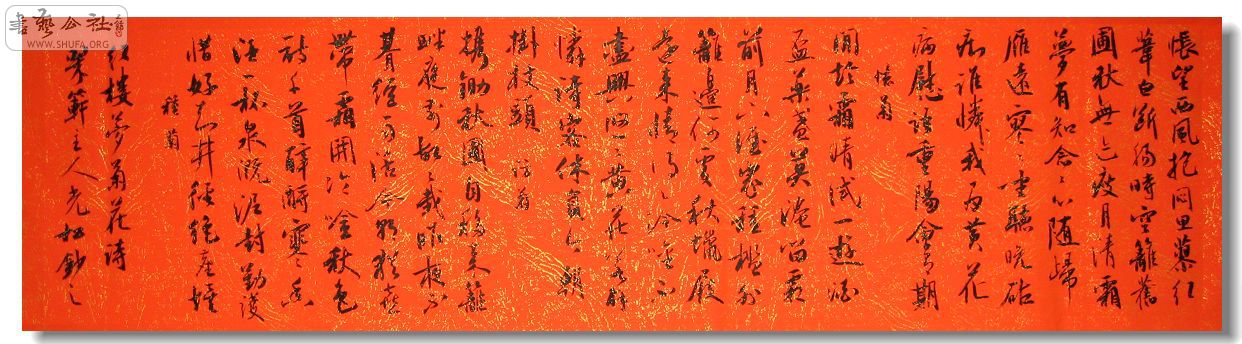 書藝公社
WWW.SHUFA.ORG
悵望西風抱悶思蓼紅
葦白斷腸時空籬舊
圃秋無迹瘦月清霜
夢有知念々心隨歸
雁遠寥々坐聽晚砧
痴誰憐我為黃花
病慰語重陽會有期
憶菊
閒趁霜晴試一遊酒
盃藥盞莫淹留霜
前月下誰家種檻外
籬邊何處秋蠟屐
遠來情得々冷吟不
盡興悠々黃花若解
憐詩客休負今朝
掛杖頭 訪菊
攜鋤秋圃自移來籬
畔庭前故々栽昨夜不
期經雨活今朝猶喜
帶霜開冷吟秋色
詩千首醉酹寒々香
酒一杯泉溉泥封勤護
惜好知井徑絕塵埃
種菊
紅樓夢菊花詩
主人光鈔之